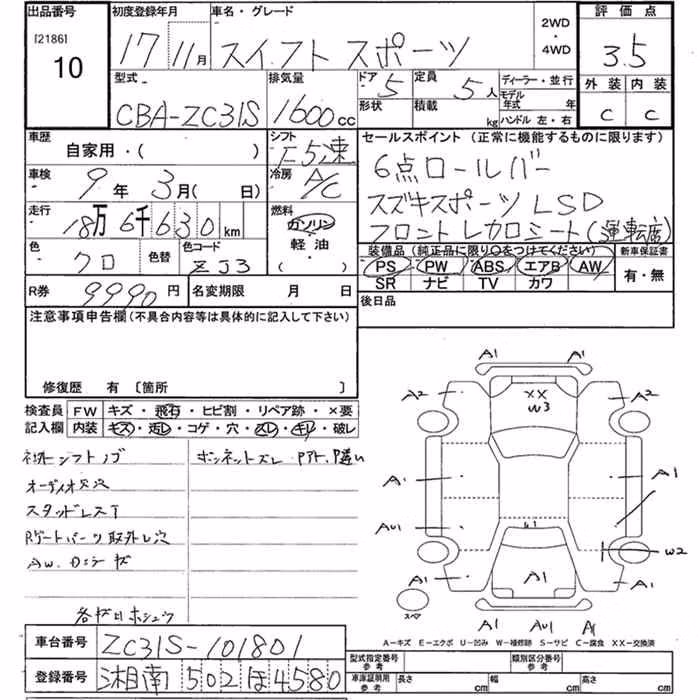 出品番号
[2186]
10
初度登録年月
17 11月
車名・グレード
スイフトスポーツ
2WD
・
4WD
評価点
3.5
外装 内装
C C
型式
CBA-ZC31S
排気量
1600cc
ドア
5
定員
5人
形状
積載
kg
ディーラー・並行
モデル
年式 年
ハンドル 左・右
車歴
自家用・( )
車検
9年 3月( 日)
走行
18万6千630km
色
クロ
色替
色コード
ZJ3
シフト
F5速
冷房
A/C
燃料
ガソリン
・
軽油
・
( )
セールスポイント (正常に機能するものに限ります)
6点ロールバー
スズキスポーツLSD
フロントレカロシート(運転席)
装備品(純正品に限り○をつけてください)
PS PW ABS エアB AW
SR ナビ TV カワ
新車保証書
有・無
後日品
R券 9990円
名変期限 月 日
注意事項申告欄(不具合内容等は具体的に記入して下さい)
修復歴 有 〔箇所 〕
検査員
記入欄
FW キズ・飛石・ヒビ割・リペア跡・×要
内装 キズ・汚レ・コゲ・穴・スレ・キレ・破レ
社外シフトノブ
オーディオ欠欠
スタッドレスT
Rゲートパーツ取外し穴
AW.ロッカーキズ
ボンネットズレ
A1 A1
A2 A2
XX
W3
A1 A1
AU1
U1
W2
A1 A1
A1
スペア
A1 AU1 A1
A-キズ E-エクボ U-凹み W-補修跡 S-サビ C-腐食 XX-交換済
車台番号
ZC31S-101801
登録番号
湘南 502 ほ 4580
型式指定番号
参考
類別区分番号
参考
車庫証明用
参考
長さ cm
幅 cm
高さ cm